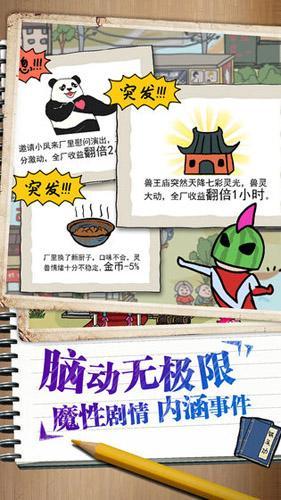 突发!!!
邀请小凤来厂里慰问演出,
分激动,全厂收益翻倍2
突发!!!
兽王庙突然天降七彩灵光,兽灵
大动,全厂收益翻倍1小时。
突发!!!
厂里换了新厨子,口味不合,灵
兽情绪十分不稳定,金币-5%
脑动无极限
魔性剧情 内涵事件